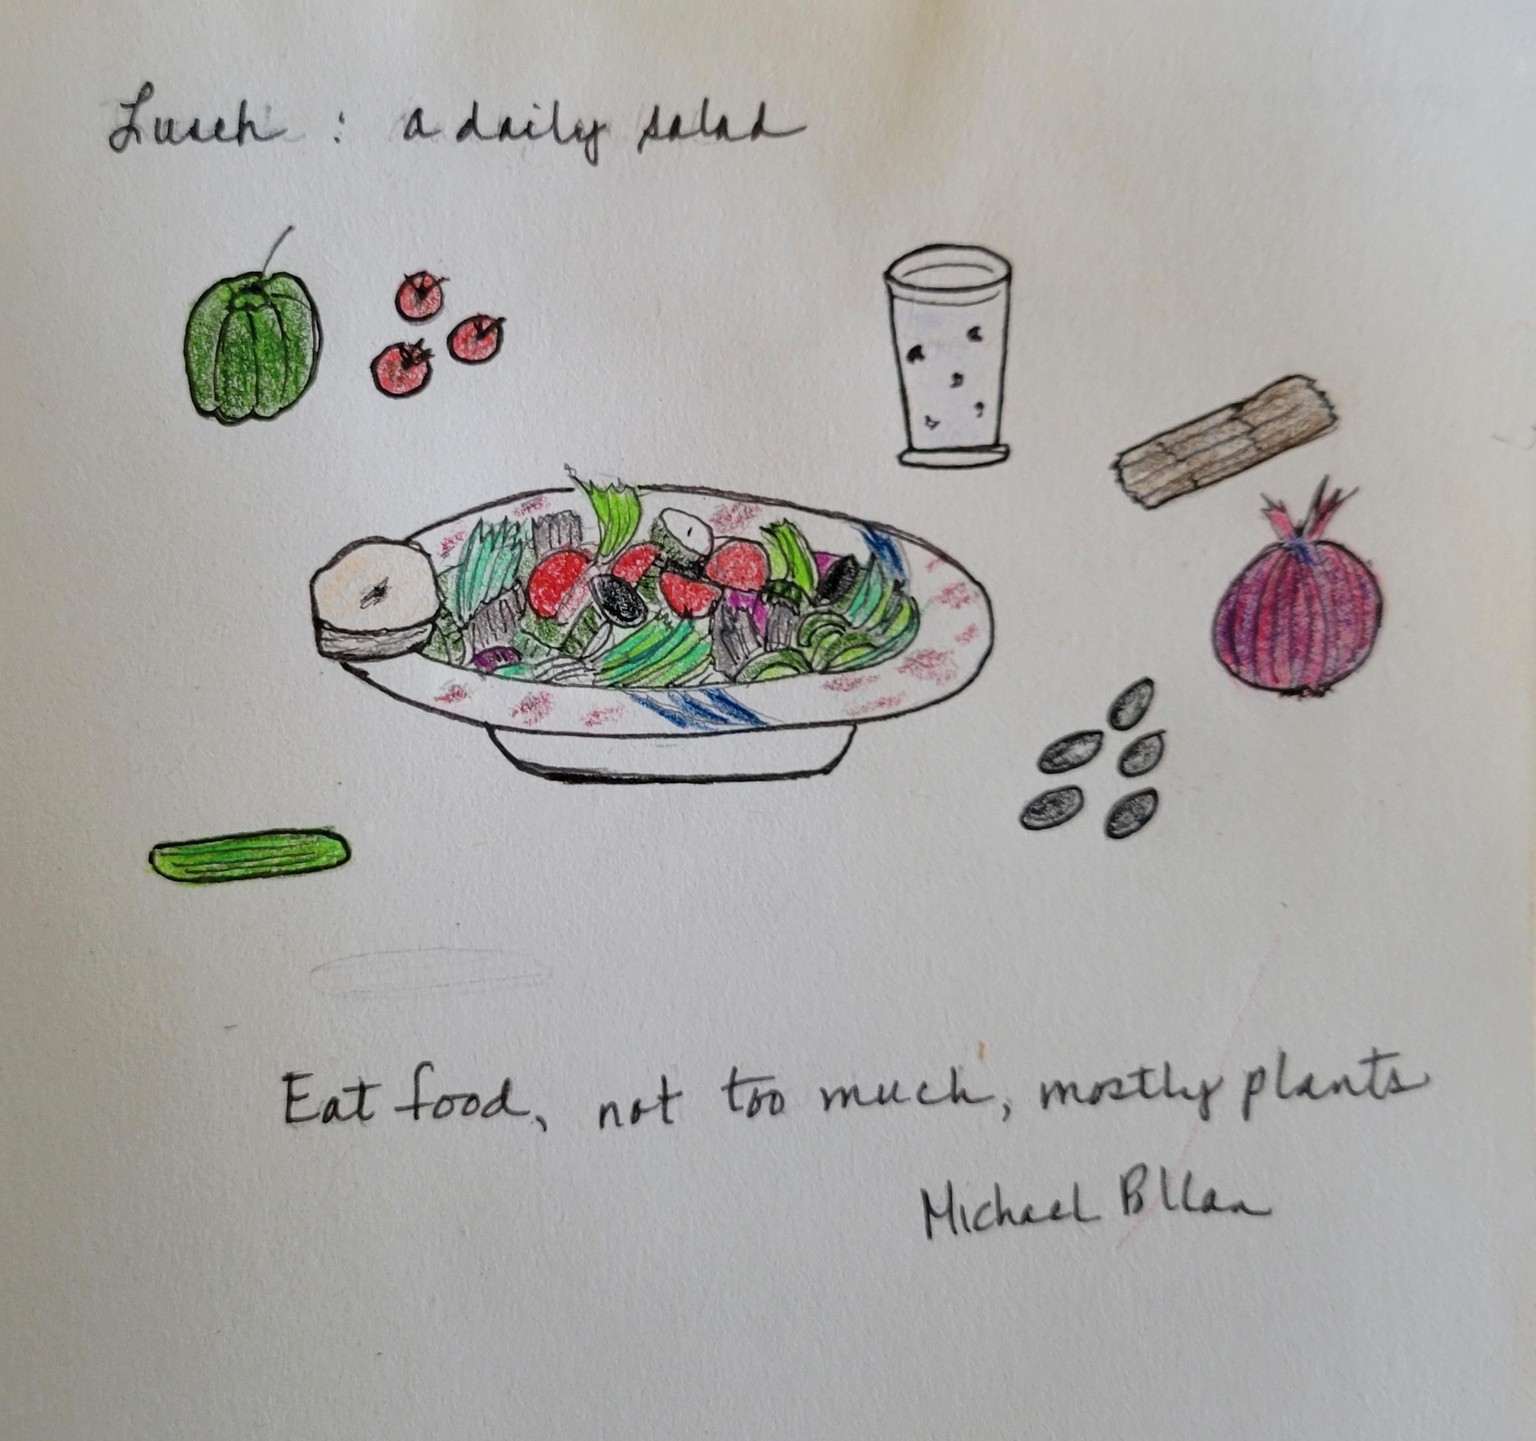 Lusch : a daily salad
Eat food, not too much, mostly plants
Michael Bllan